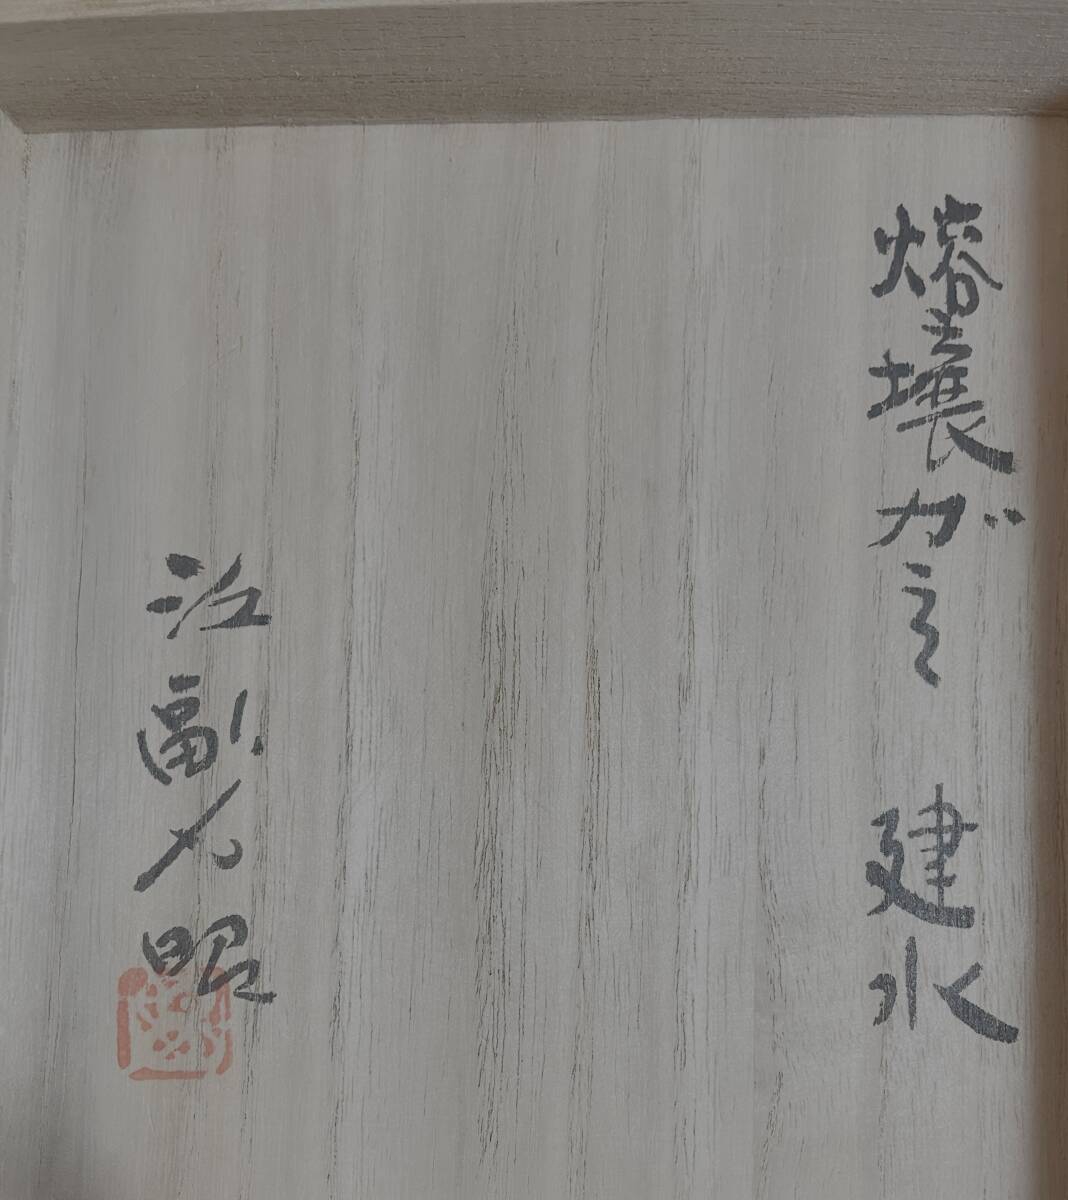 熔壌ガラス 建水
江副行昭